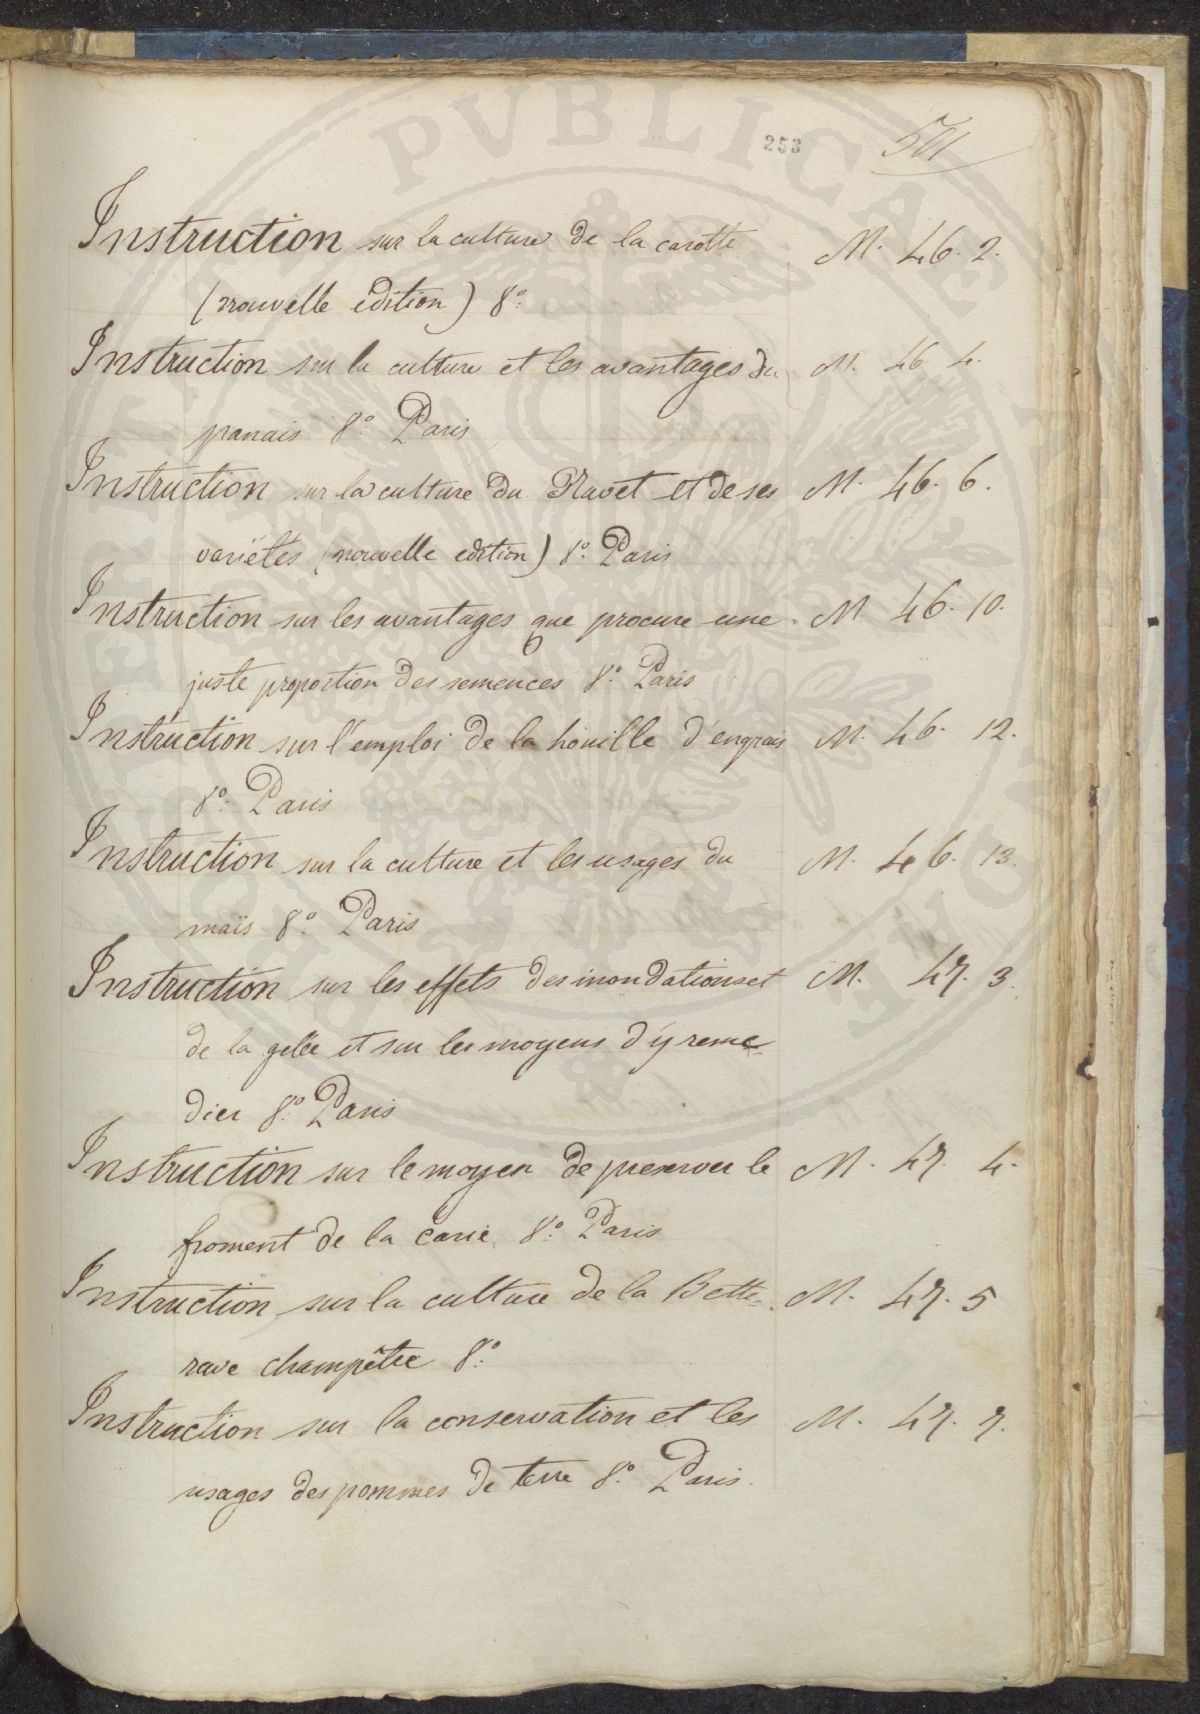 253
501
Instruction sur la culture de la carotte M. 46. 2.
(nouvelle édition) 8°.
Instruction sur la culture et les avantages du M. 46 4.
panais 8°. Paris
Instruction sur la culture du Navet et de ses M. 46. 6.
variétés (nouvelle edition) 8°. Paris
Instruction sur les avantages que procure une M. 46. 10.
juste proportion des semences 8°. Paris
Instruction sur l'emploi de la houille d'engrais M. 46. 12.
8°. Paris
Instruction sur la culture et les usages du M. 46. 13.
maïs 8°. Paris
Instruction sur les effets des inondations et M. 47. 3.
de la gelée et sur les moyens d'y remé-
dier 8°. Paris
Instruction sur le moyen de preserver le M. 47. 4.
froment de la carie 8°. Paris
Instruction sur la culture de la Bette- M. 47. 5
rave champêtre 8°.
Instruction sur la conservation et les M. 47. 7.
usages des pommes de terre 8°. Paris.